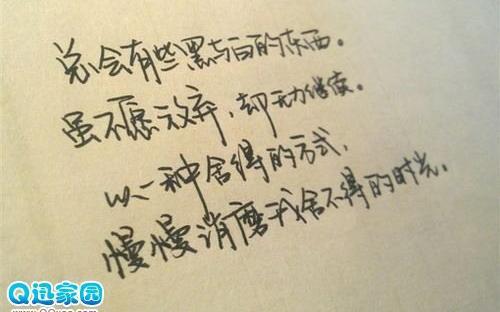 总会有些黑与白的东西。
虽不愿放弃，却无力继续。
以一种舍得的方式，
慢慢消磨我舍不得的时光。
Q迅家园